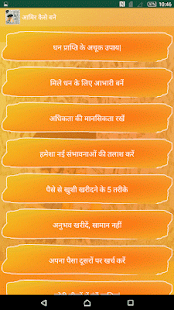 10:46
अमीर कैसे बने
धन प्राप्ति के अचूक उपाय|
मिले धन के लिए आभारी बनें
अधिकता की मानसिकता रखें
हमेशा नई संभावनाओं की तलाश करें
पैसे से खुशी खरीदने के 5 तरीके
अनुभव खरीदें, सामान नहीं
अपना पैसा दूसरों पर खर्च करें